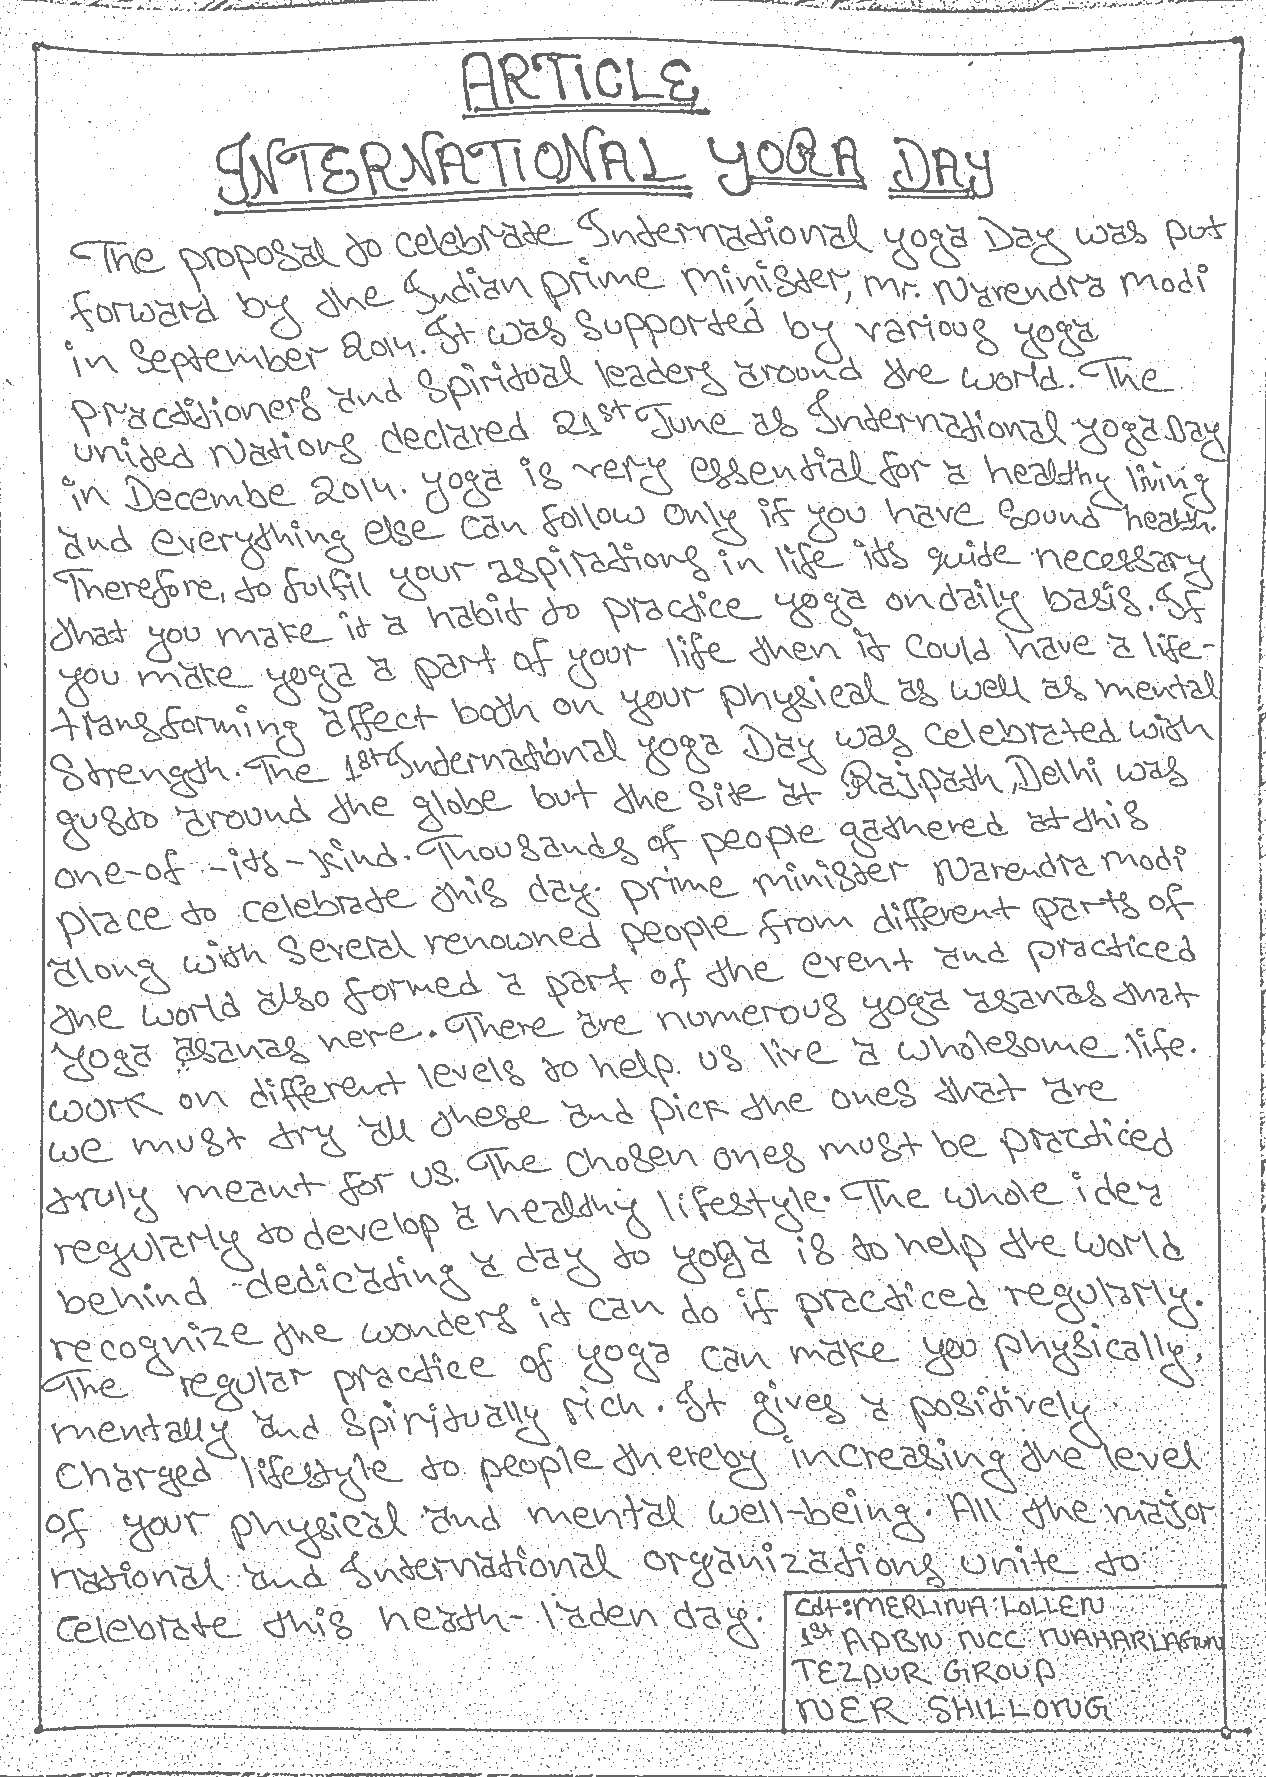 ARTICLE
INTERNATIONAL YOGA DAY
The proposal to celebrate International yoga Day was put
forward by the Indian prime Minister, Mr. Narendra Modi
in September 2014. It was supported by various yoga
practitioners and spiritual leaders around the world. The
united Nations declared 21st June as International yoga Day
in Decembe 2014. yoga is very essential for a healthy living
and everything else can follow only if you have sound health.
Therefore, to fulfil your aspirations in life its quite necessary
that you make it a habit to practice yoga on daily basis. If
you make yoga a part of your life then it could have a life-
transforming affect both on your physical as well as mental
strength. The 1st International yoga Day was celebrated with
gusto around the globe but the site at Rajpath, Delhi was
one-of-its-kind. Thousands of people gathered at this
place to celebrate this day. prime minister Narendra Modi
along with several renowned people from different parts of
the world also formed a part of the event and practiced
yoga asanas here. There are numerous yoga asanas that
work on different levels to help us live a wholesome life.
we must try all these and pick the ones that are
truly meant for us. The chosen ones must be practiced
regularly to develop a healthy lifestyle. The whole idea
behind dedicating a day to yoga is to help the world
recognize the wonders it can do if practiced regularly.
The regular practice of yoga can make you physically,
mentally and spiritually rich. It gives a positively
charged lifestyle to people thereby increasing the level
of your physical and mental well-being. All the major
national and International organizations unite to
celebrate this heath-laden day.
Cdt: MERLINA LOLLEN
1st APBN NCC NAHARLAGUN
TEZPUR GROUP
NER SHILLONG